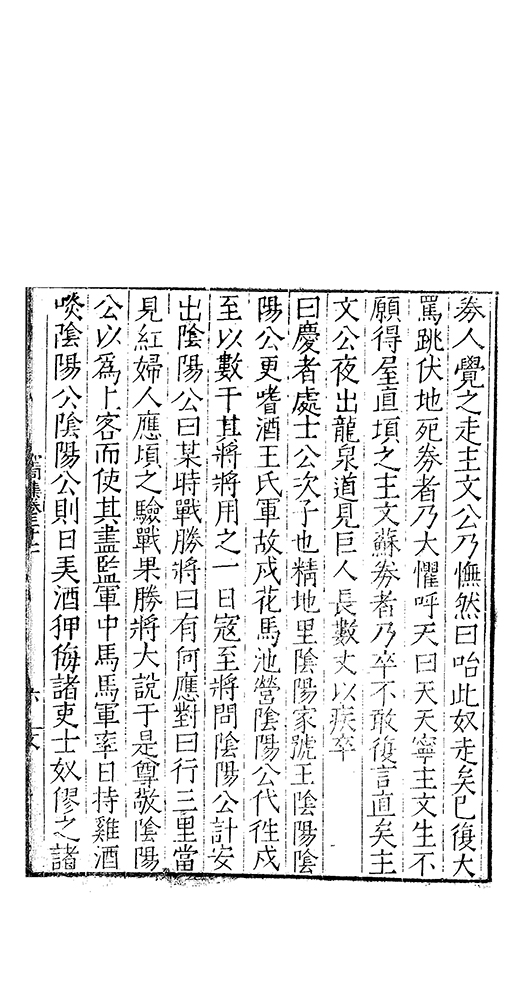 券人覺之走主文公乃憮然曰咍此奴走矣已復大
罵跳伏地死券者乃大懼呼天曰天天寧主文生不
願得屋直頃之主文蘇券者乃卒不敢復言直矣主
文公夜出龍泉道見巨人長數丈以疾卒
曰慶者處士公次子也精地里陰陽家號王陰陽陰
陽公更嗜酒王氏軍故戍花馬池營陰陽公代徃戍
至以數干其將將用之一日寇至將問陰陽公計安
出陰陽公曰某時戰勝將曰有何應對曰行三里當
見紅婦人應頃之驗戰果勝將大說于是尊敬陰陽
公以爲上客而使其盡監軍中馬馬軍率日持雞酒
啖陰陽公陰陽公則日美酒狎侮諸吏士奴僇之諸